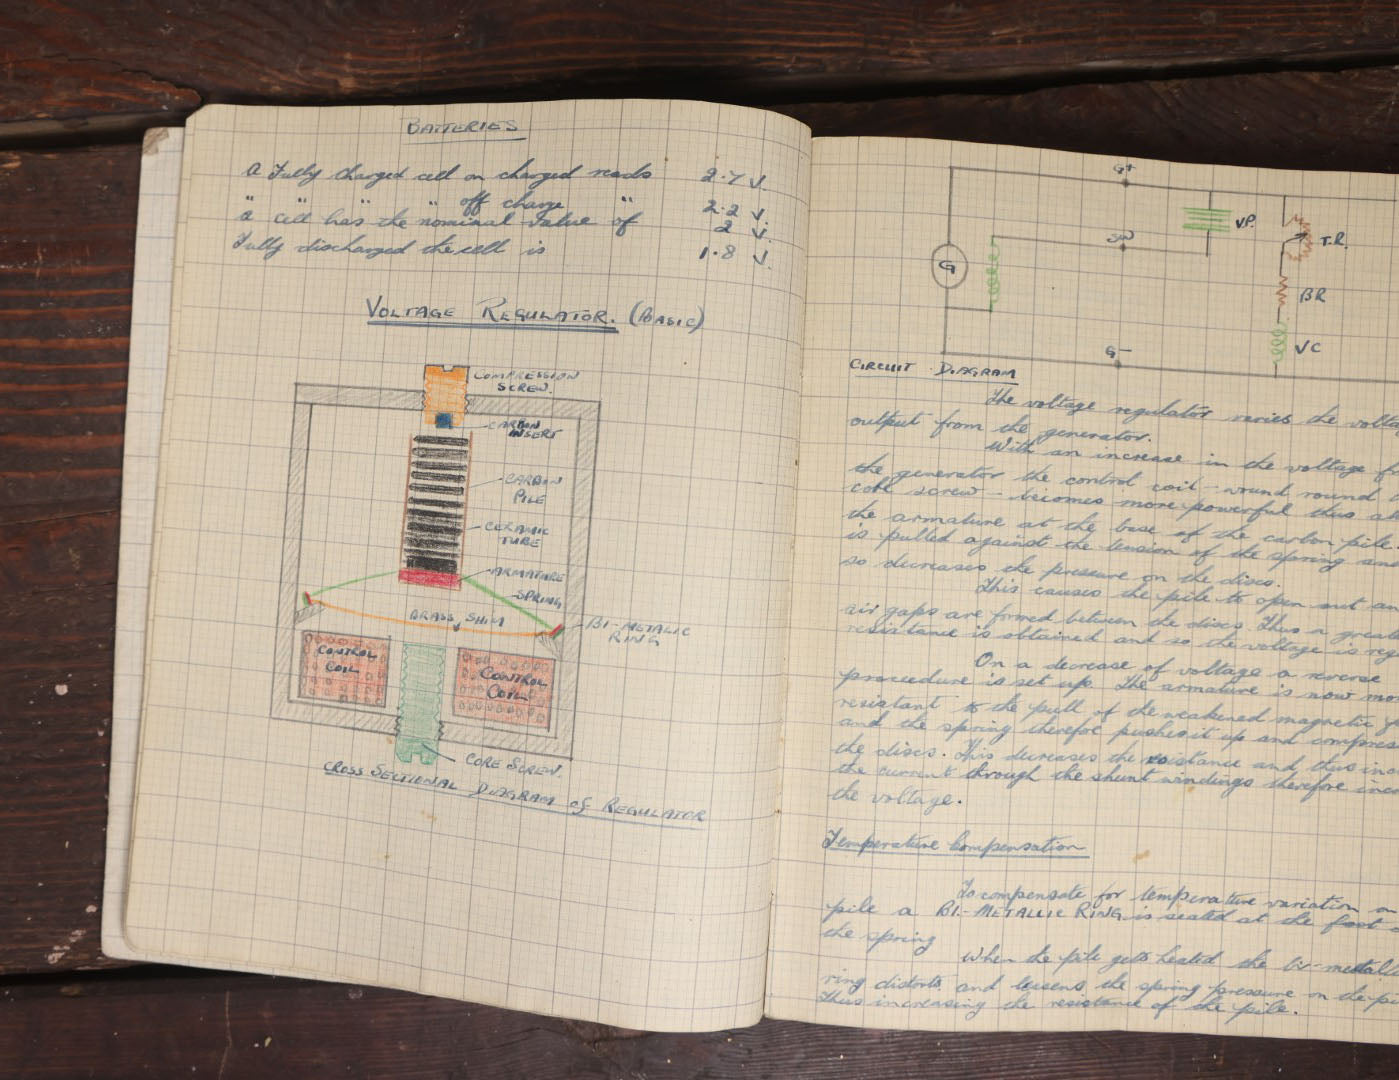 BATTERIES
A Fully charged cell on charged reads 2.7 V.
" " " off charge " 2.2 V.
A cell has the nominal value of 2 V.
Fully discharged the cell is 1.8 V.
VOLTAGE REGULATOR. (BASIC)
COMPRESSION
SCREW.
CARBON
INSERT
CARBON
PILE
CERAMIC
TUBE
ARMATURE
SPRING
BRASS SHIM
BI-METALIC
RING
CONTROL
COIL
CONTROL
COIL
CORE SCREW.
CROSS SECTIONAL DIAGRAM of REGULATOR
G+
V.P.
SW
T.R.
G
BR
VC
G-
CIRCUIT DIAGRAM
The voltage regulator varies the
output from the generator.
With an increase in the voltage
the generator the control coil - wound round
core screw - becomes more powerful thus
the armature at the base of the carbon pile
is pulled against the tension of the spring and
so decreases the pressure on the discs.
This causes the pile to open out
air gaps are formed between the discs. Thus a
resistance is obtained and so the voltage is
On a decrease of voltage a reverse
proceedure is set up. The armature is now
resistant to the pull of the weakened magnetic
and the spring therefore pushes it up and
the discs. This decreases the resistance and thus
the current through the shunt windings therefore
the voltage.
Temperature Compensation
To compensate for temperature variation
pile a BI-METALLIC RING is seated at the foot
the spring
When the pile gets heated the
ring distorts and loosens the spring pressure on the
thus increasing the resistance of the pile.